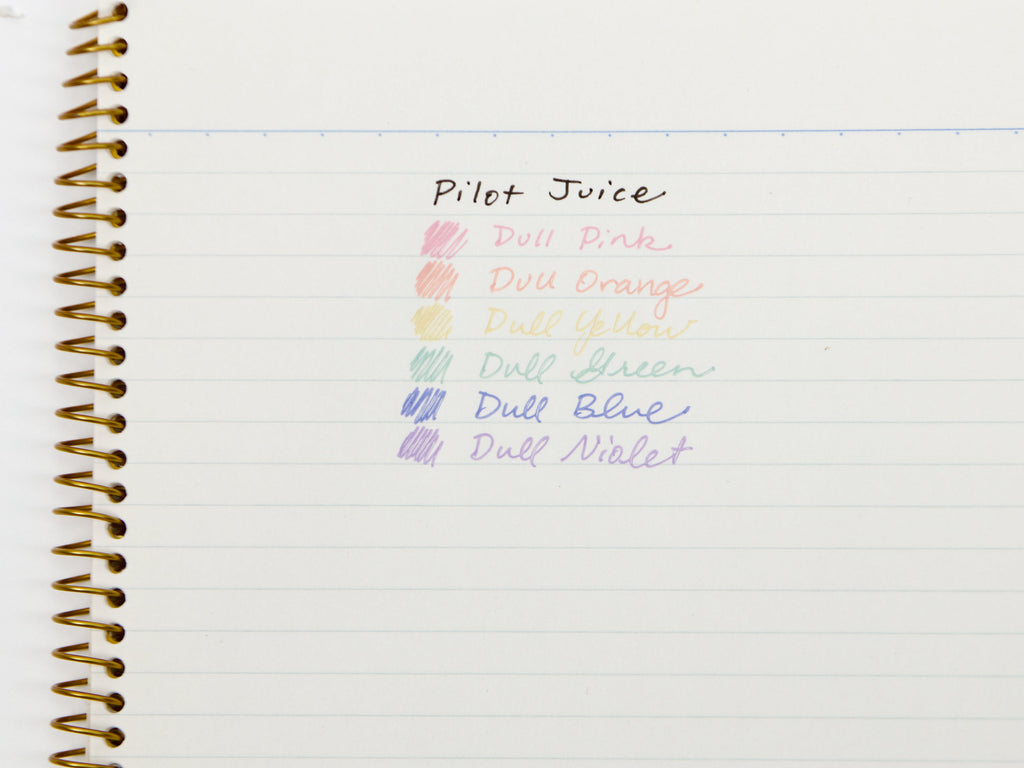 Pilot Juice
Dull Pink
Dull Orange
Dull Yellow
Dull Green
Dull Blue
Dull Violet